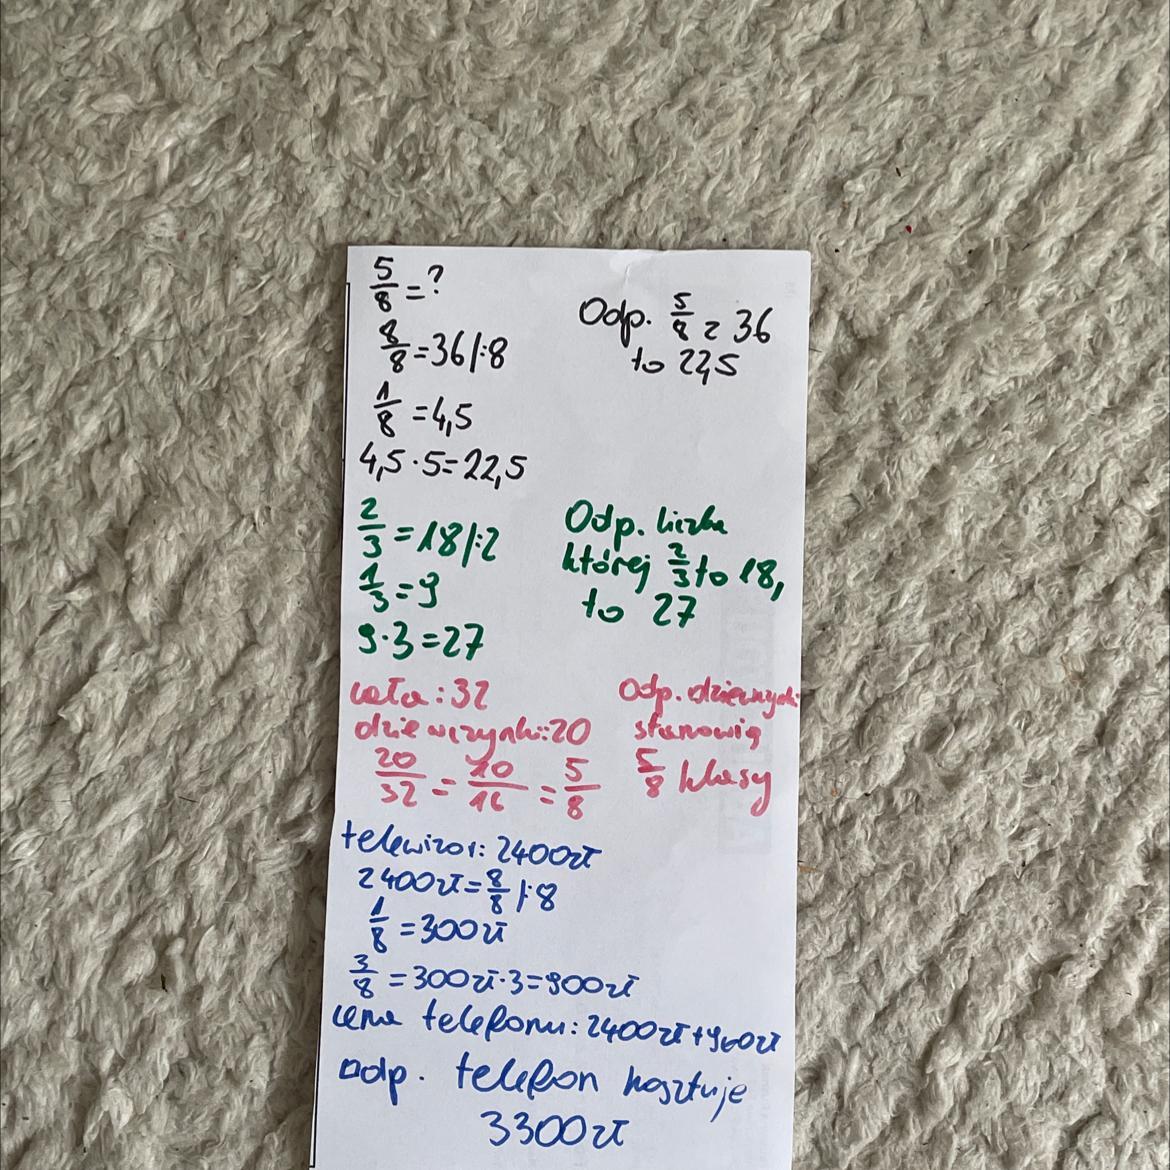 5/8 = ?
8/8 = 36 |:8
1/8 = 4,5
4,5 · 5 = 22,5
Odp. 5/8 z 36
to 22,5
2/3 = 18 |:2
1/3 = 9
9 · 3 = 27
Odp. liczba
której 2/3 to 18,
to 27
cała: 32
dziewczynki: 20
20/32 = 10/16 = 5/8
Odp. dziewczynki
stanowią
5/8 klasy
telewizor: 2400zł
2400zł = 8/8 |:8
1/8 = 300zł
3/8 = 300zł · 3 = 900zł
cena telefonu: 2400zł + 900zł
Odp. telefon kosztuje
3300zł